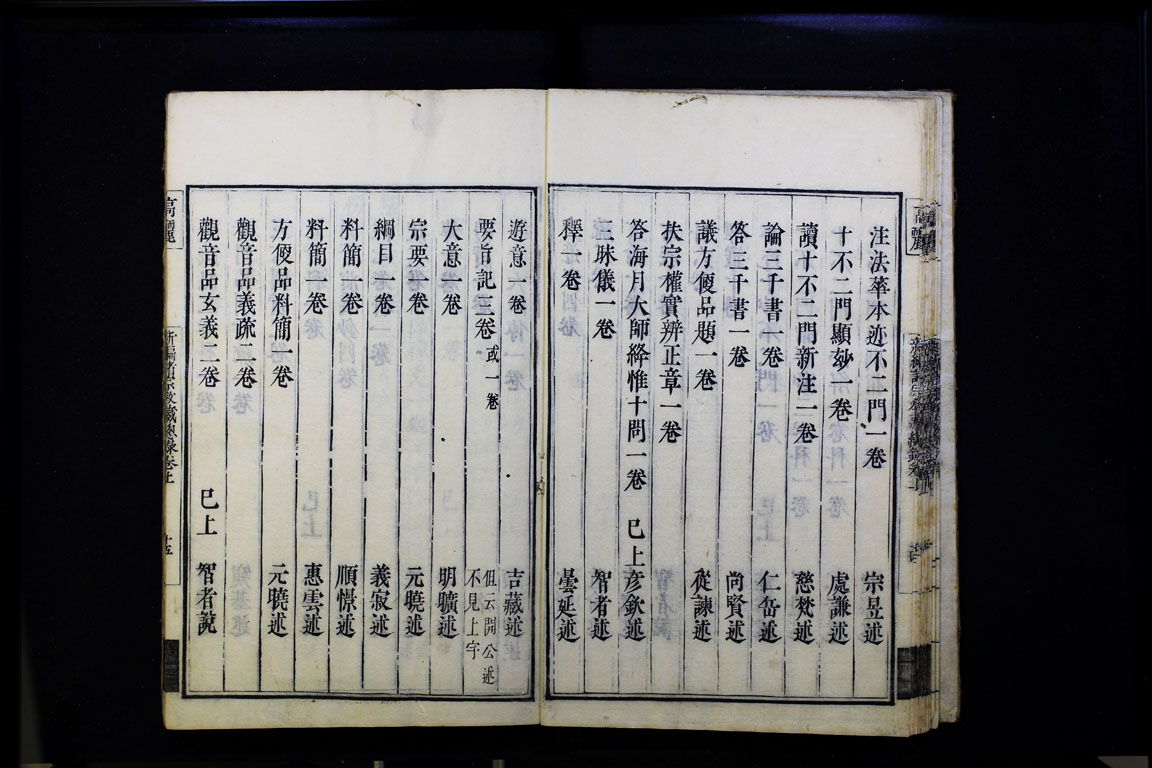 注法華本迹不二門一卷 宗昱述
十不二門顯玅一卷 處謙述
讀十不二門新注一卷 慈梵述
論三千書一卷 仁岳述
答三千書一卷 尚賢述
議方便品題一卷 從諫述
扶宗權實辨正章一卷
答海月大師絳惟十問一卷 巳上彥欽述
三昧儀一卷 智者述
釋一卷 曇延述
遊意一卷 吉藏述
要旨記三卷或一卷 但云開公述不見上字
大意一卷 明曠述
宗要一卷 元曉述
綱目一卷 義寂述
料簡一卷 順憬述
料簡一卷 惠雲述
方便品料簡一卷 元曉述
觀音品義疏二卷
觀音品玄義二卷 巳上 智者說
高麗
新編諸宗教藏總錄卷上
十五